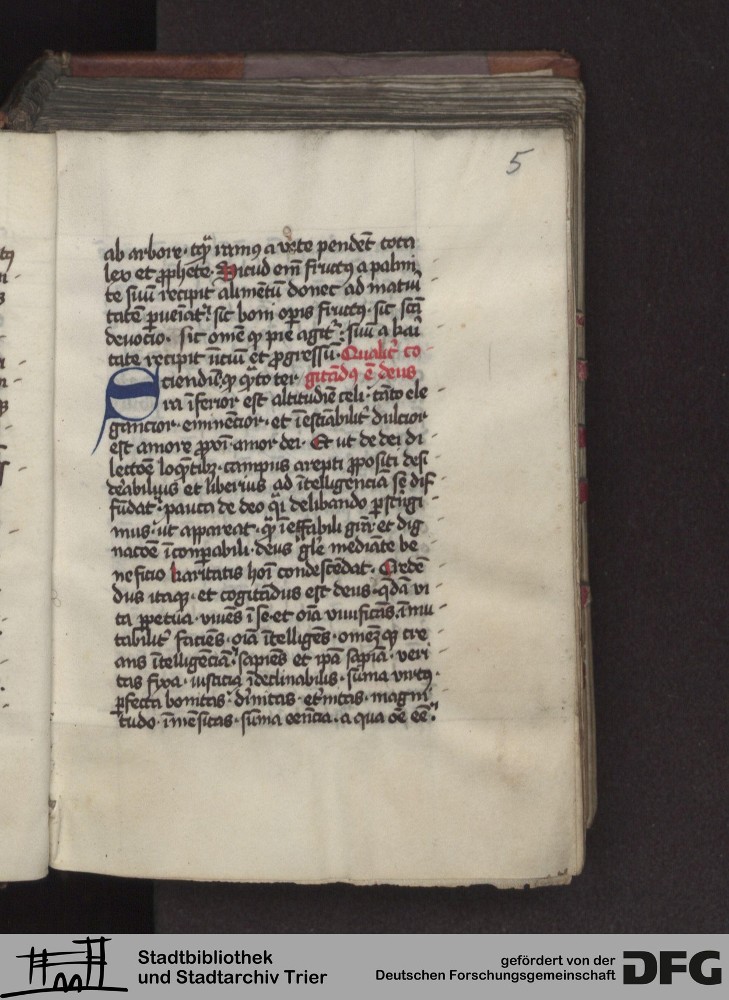 5
ab arbore · tāqȝ ramꝯ a vite pendet tota
lex et ꝓphete · Sicud em̄ fructꝯ a palmi
te suū recipit alimētū donec ad matu
tatē ꝑueniat: sic boni oꝑis fructꝯ · sic scā
devocio · sic omē qꝫ pie agit᷑ : suū a kari
tate recipit et ꝓgressū · Qualit᷑ co
Sciendū · qꝫ qͣto ter gitādꝯ ē deus
ra īferior est altitudīe celi · tāto ele
gancior · eminēcior · et īestīabilit᷑ dulcior
est amore amor dei · Et ut de dei di
lectōe campus arepti ꝓpositi desi
derabilius et liberius ad ītelligenciā se dif
fūdat: pauca de deo delibando ꝑstrīgi
mus · ut appareat · īeffabili et dig
nacōe īcomꝑabili · deus gl̄e mediāte be
neficio karitatis hoī condescēdat · Credē
dus itaqꝫ · et cogitādus est deus · q̄dā vi
ta ꝑpetua · vivēs ī se · et oīa vivificās · īmu
tabilit᷑ faciēs · oīa ītelligēs · omēqꝫ cre
ans ītelligēciā: sapiēs et ipā sapīa · veri
tas fixa · iusticia īdeclinabilis · sūma virtꝯ ·
ꝑfecta bonitas: dīnitas · et̄nitas · magni
tudo · īmēsitas · sūma eēncia · a qua oē eē:
Stadtbibliothek
und Stadtarchiv Trier
gefördert von der
Deutschen Forschungsgemeinschaft
DFG